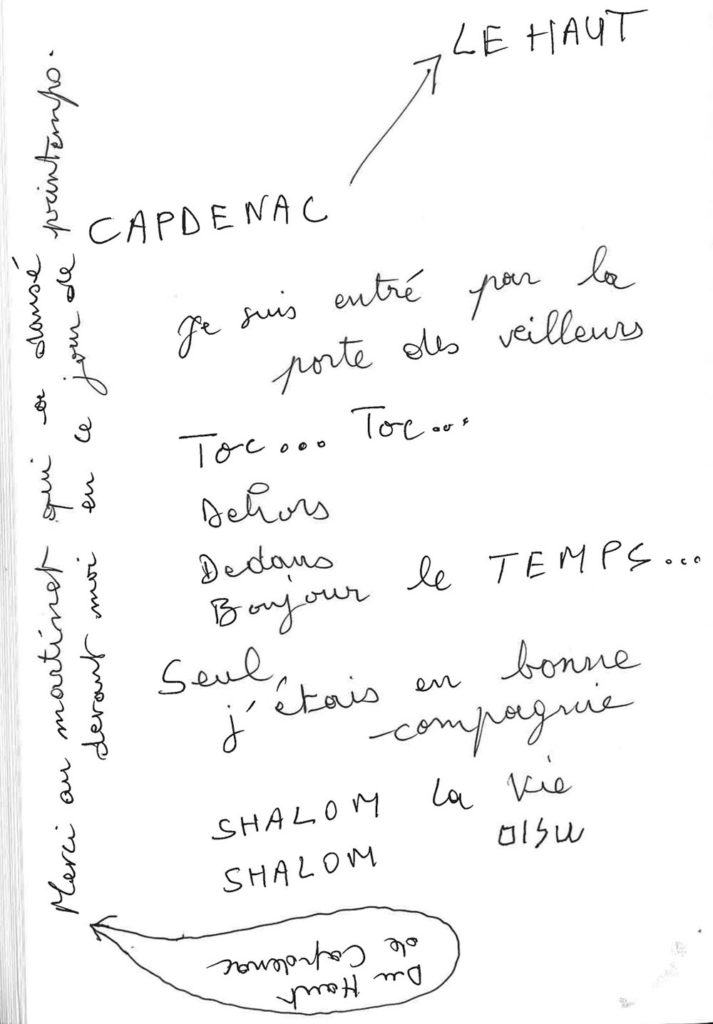 LE HAUT
CAPDENAC
Je suis entré par la
porte des veilleurs
Toc... Toc...
Dehors
Dedans
Bonjour le TEMPS...
Seul,
j'étais en bonne
compagnie
SHALOM la Vie
SHALOM שלום
Merci au martinet qui a dansé
devant moi en ce jour de printemps.
Du Haut
de Capdenac